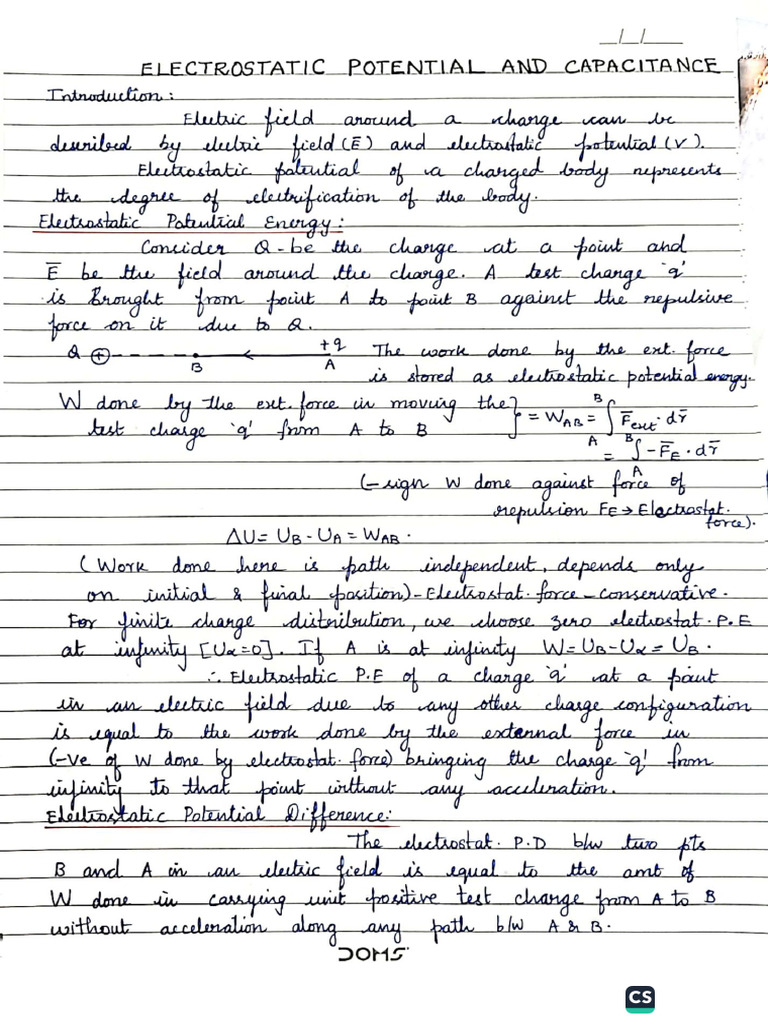 __/__/____
ELECTROSTATIC POTENTIAL AND CAPACITANCE
Introduction:
Electric field around a charge can be
described by electric field (E̅) and electrostatic potential (V).
Electrostatic potential of a charged body represents
the degree of electrification of the body.
Electrostatic Potential Energy:
Consider Q-be the charge at a point and
E̅ be the field around the charge. A test charge 'q'
is Brought from point A to point B against the repulsive
force on it due to Q.
Q ⊕ B +q A The work done by the ext. force
is stored as electrostatic potential energy.
W done by the ext. force in moving the } = W_AB = ∫_A^B F̅ext · dr̅
test charge 'q' from A to B
= ∫_A^B -F̅_E · dr̅
(-sign W done against force of
repulsion FE → Electrostat. force).
ΔU = U_B - U_A = W_AB.
(Work done here is path independent, depends only
on initial & final position)-Electrostat. force-conservative.
For finite charge distribution, we choose zero electrostat. P.E
at infinity [U∝=0]. If A is at infinity W= U_B-U∝ = U_B.
∴ Electrostatic P.E of a charge 'q' at a point
in an electric field due to any other charge configuration
is equal to the work done by the external force in
(-ve of W done by electrostat. force) bringing the charge 'q' from
infinity to that point without any acceleration.
Electrostatic Potential Difference:
The electrostat. P.D b/w two pts
B and A in an electric field is equal to the amt of
W done in carrying unit positive test charge from A to B
without acceleration along any path b/w A & B.
DOMS
CS